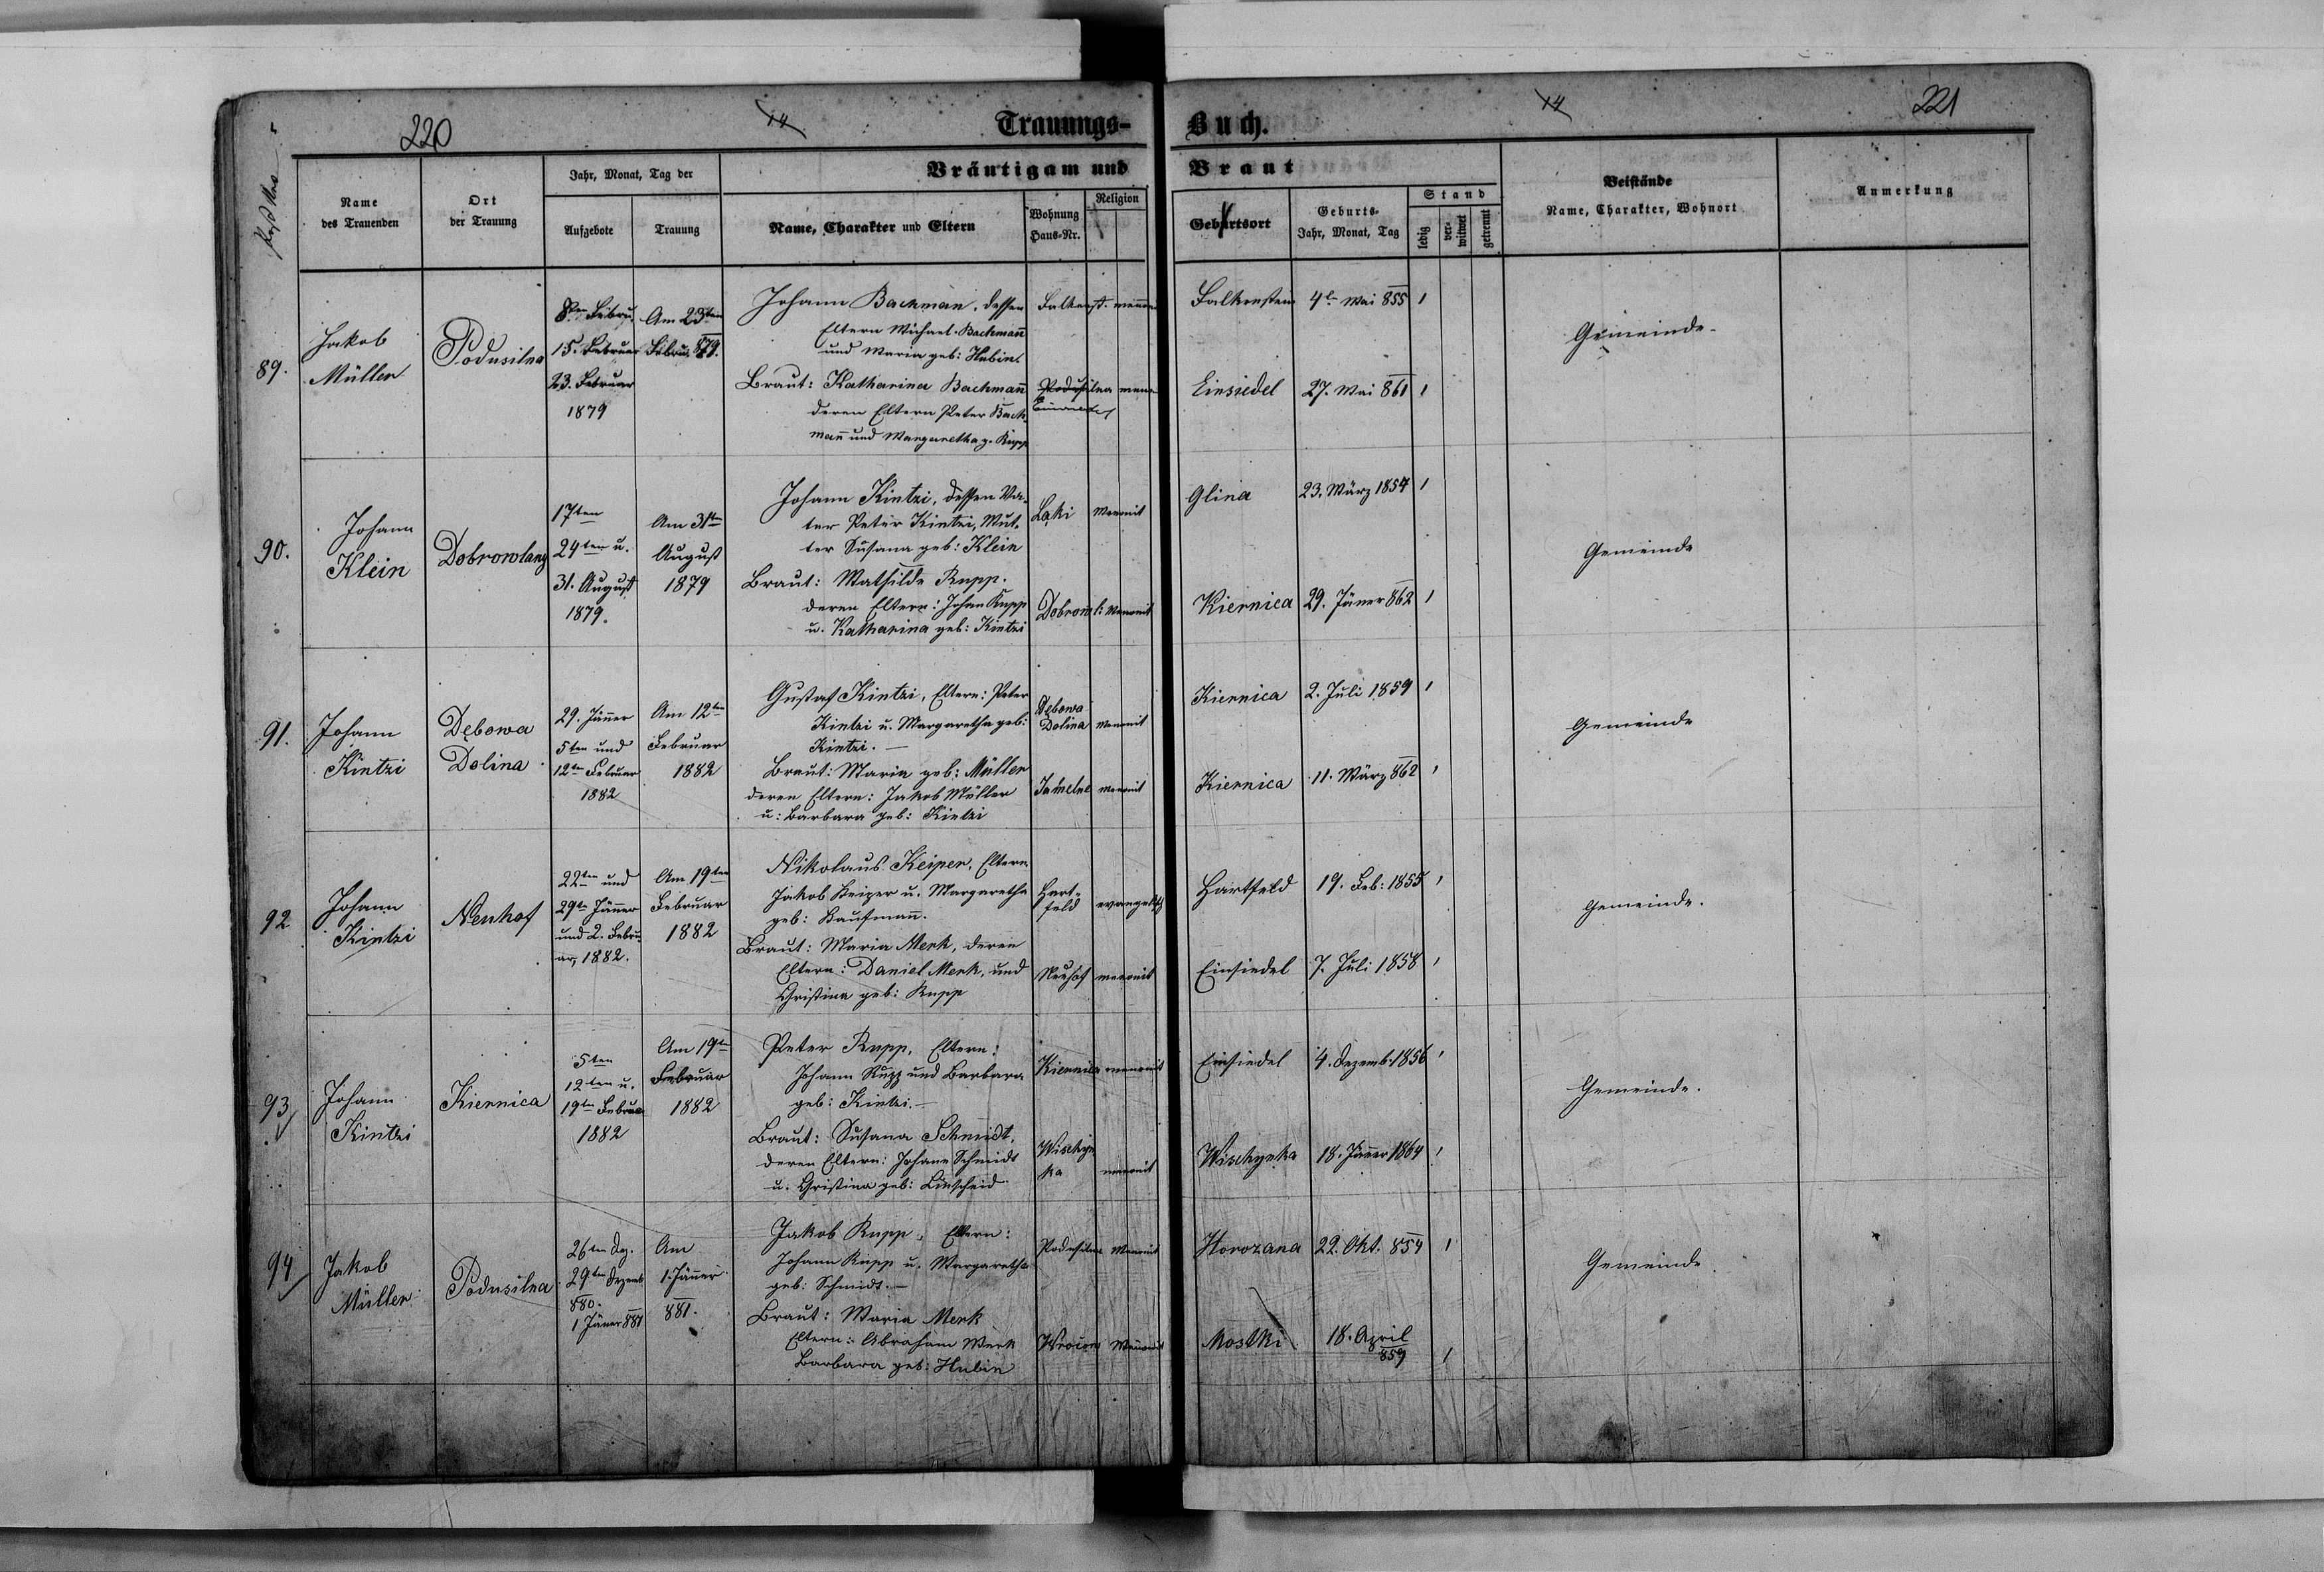 220
14
Trauungs-
Buch.
14
221
Name des Trauenden
Ort der Trauung
Jahr, Monat, Tag der
Aufgebote
Trauung
Bräutigam und
Braut
Name, Charakter und Eltern
Wohnung Haus-Nr.
Religion
Geburtsort
Geburts-
Jahr, Monat, Tag
Stand
ledig
ver-
witwet
getrennt
Beistände
Name, Charakter, Wohnort
Anmerkung
89.
Jakob
Müller
Podusilna
8ten Febru.
15. Februar
23. Februar
1879
Am 23ten
Febru. 879.
Johann Bachman, dessen
Eltern Michael Bachmañ
und Maria geb: Hubin.
Falkenst.
Falkenstein
4t Mai 855
1
Gemeinde
Braut: Katharina Bachmañ
deren Eltern Peter Bach
mañ und Margaretha g. Rupp
Podusilna
Einsiedel
27. Mai 861
1
90.
Johann
Klein
Dobrowlany
17ten
24ten u.
31. August
1879.
Am 31ten
August
1879
Johann Kintzi, dessen Va-
ter Peter Kintzi, Mut-
ter Susana geb: Klein
Łąki
Menonit
Glina
23. März 1854
1
Gemeinde
Braut: Mathilde Rupp.
deren Eltern: Johan Rupp
u. Katharina geb: Kintzi
Menonit
Kiernica
29. Jäner 862
1
91.
Johann
Kintzi
Dębowa
Dolina
29. Jäner
5ten und
12ten Februar
1882
Am 12ten
Februar
1882
Gustaf Kintzi, Eltern: Peter
Kintzi u. Margaretha geb:
Kintzi. —
Dębowa
Dolina
menonit
Kiernica
2. Juli 1859
1
Gemeinde
Braut: Maria geb: Müller
deren Eltern: Jakob Müller
u: Barbara geb: Kintzi
Jamelne
menonit
Kiernica
11. März 862
1
92
Johann
Kintzi
Neuhof
22ten und
29ten Jäner
und 2. Febru
ar 1882.
Am 19ten
Februar
1882
Nikolaus Keiper, Eltern
Jakob Keiper u. Margaretha
geb: Kaufmañ.
Hart-
feld
evangelisch
Hartfeld
19. Feb: 1855
1
Gemeinde.
Braut: Maria Merk, deren
Eltern: Daniel Merk, und
Christina geb: Rupp
Neuhof
menonit
Einsiedel
7. Juli 1858
1
93
Johann
Kintzi
Kiernica
5ten
12ten u.
19ten Februa
1882
Am 19ten
Februar
1882
Peter Rupp, Eltern:
Johann Rupp und Barbara
geb: Kintzi. —
Kiernica
menonit
Einsiedel
4. Dezemb. 1856
1
Gemeinde.
Braut: Susana Schmidt,
deren Eltern: Johann Schmidt
u. Christina geb: Linscheid
Wischyn
ka
menonit
Wischynka
18. Jäner 1864
1
94
Jakob
Müller
Podusilna
26ten Dez.
29ten Dezemb
880.
1 Jäner 881
Am
1. Jäner
881.
Jakob Rupp, Eltern:
Johann Rupp u. Margaretha
geb: Schmidt. —
Podusilna
Menonit
Horozana
22. Okt. 854
1
Gemeinde
Braut: Maria Merk
Eltern: Abraham Merk
Barbara geb: Hubin
Menonit
Mostki
18. April
859
1